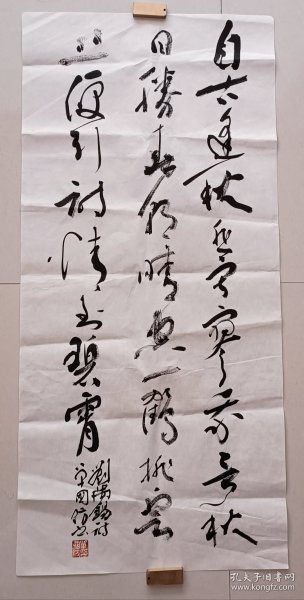 自古逢秋悲寂寥我言秋
日勝春朝晴空一鶴排雲
上便引詩情到碧霄
劉禹錫詩
孔夫子旧书网